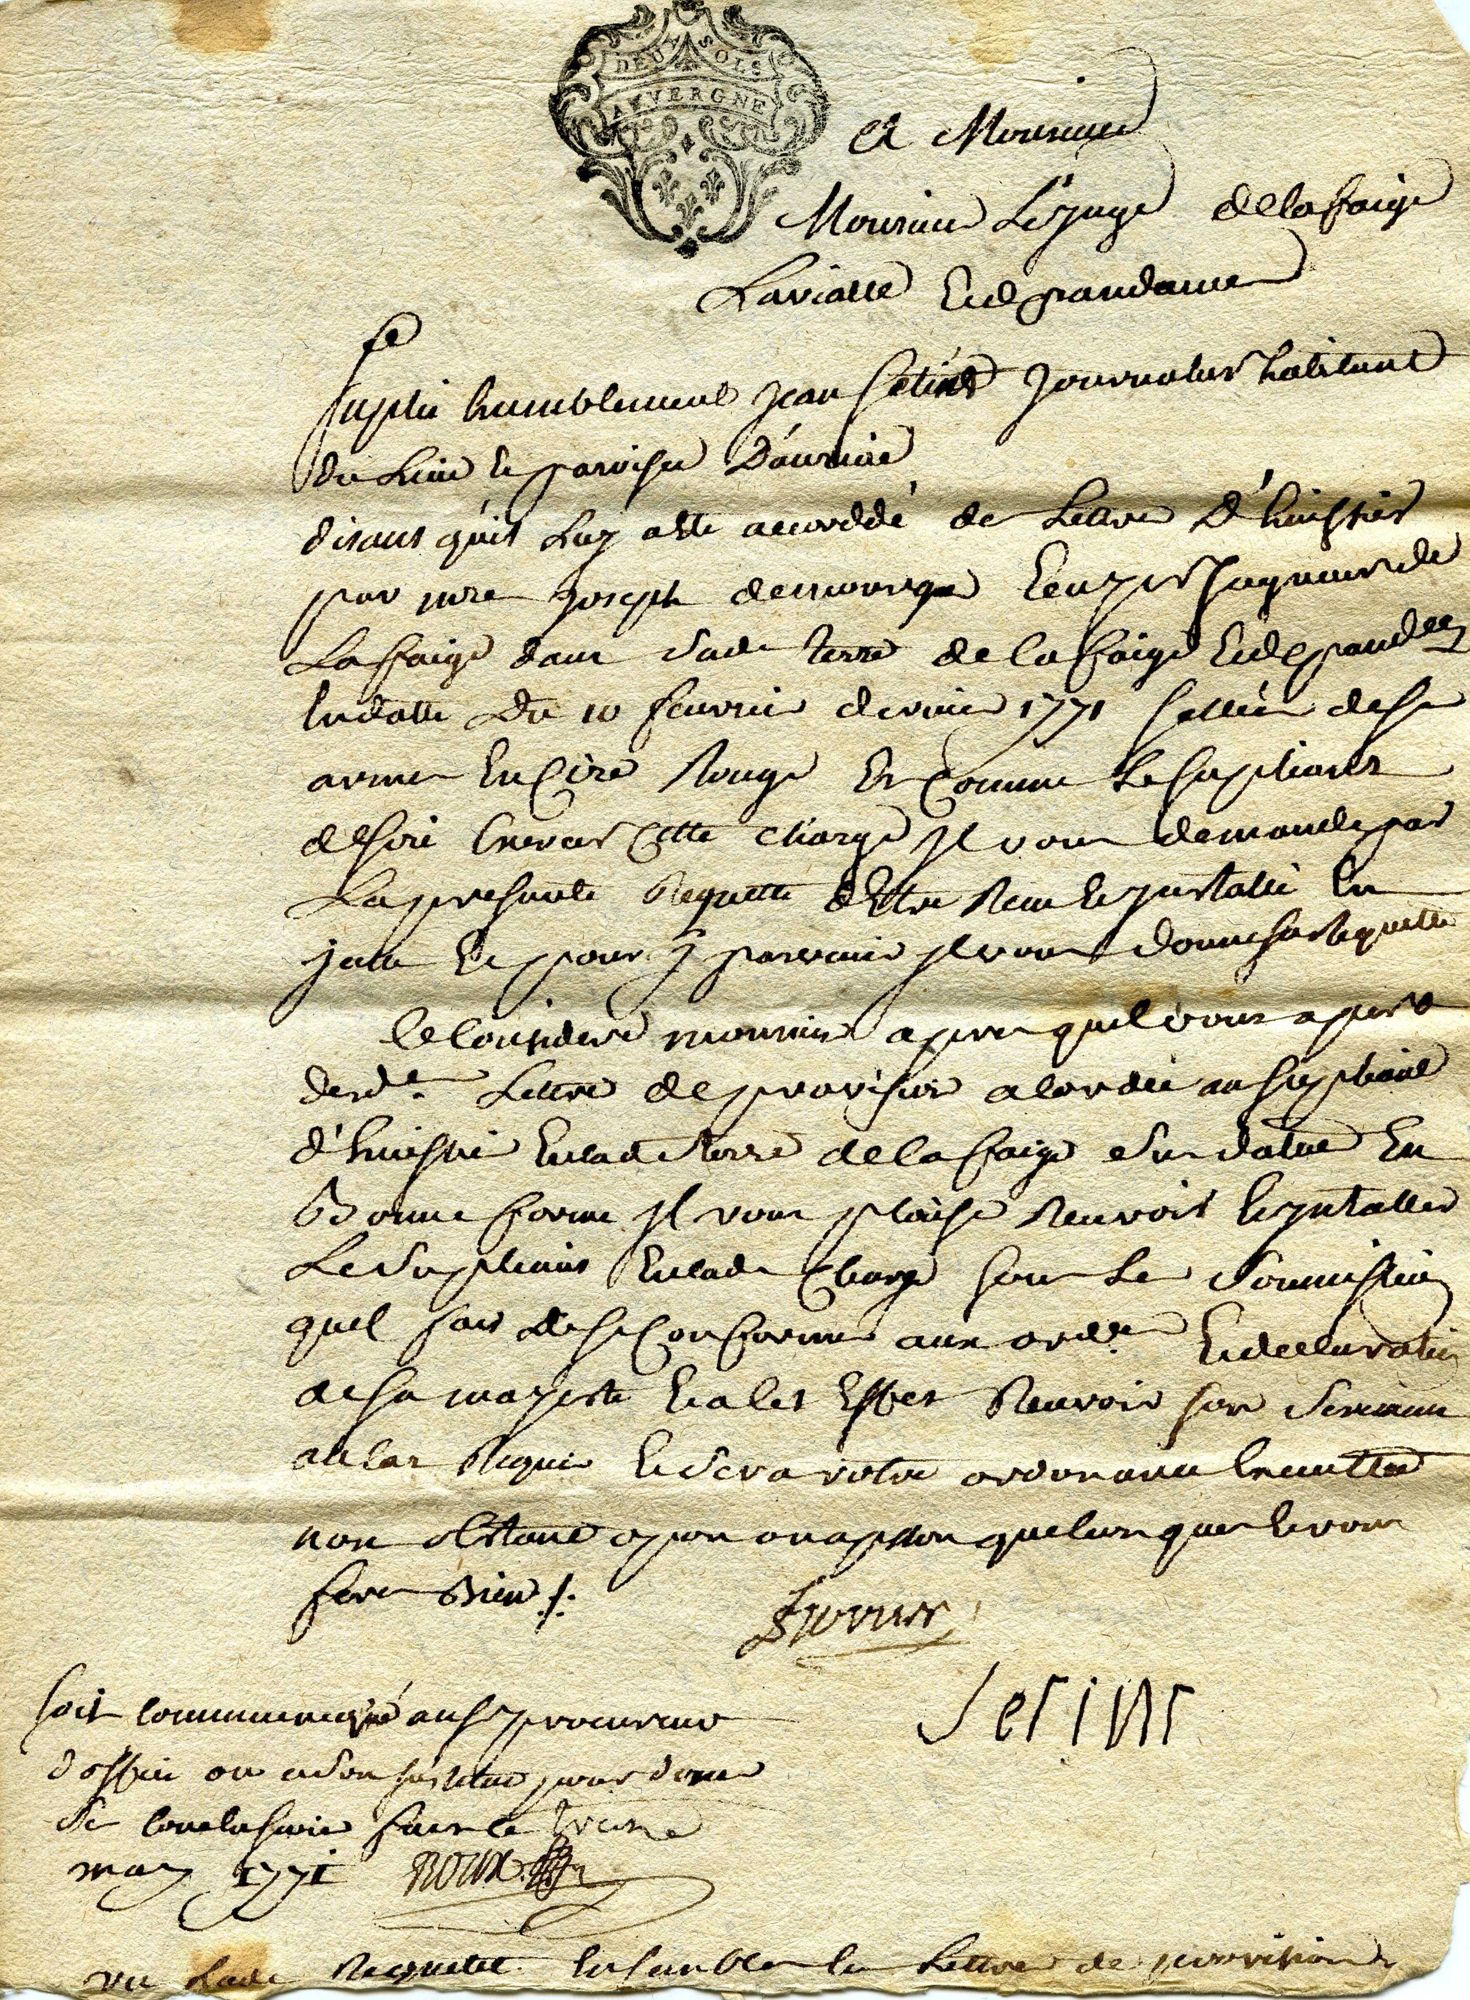 DEUX SOLS
AUVERGNE
A Monsieur
Monsieur Le Juge de lafaige
Lavialle Et dependances
Suplie humblement Jean journalier habitant
du Lieu et paroisse
disant quil Luy atte accorddé de Lettre d'huissier
par mre Joseph de Seigneur de
Lafaige dans sade terre de lafaige Et despandces
En datte du 10 feuvrier dernier 1771 sellée de se
armes En Cire Rouge Et Comme Le supliant
desire Exercer Cette charge Il vous demande par
La presante Requette d'Etre Receu Et Installé En
Icelle Et pour y parvenir Il vous donne sa Requette
Ce Considere monsieur apres quil vous apert
des de Lettre de provision acordée au supliant
d'huissier En lade terre de lafaige En
Bonne forme Il vous plaise Recevoir Et Installer
Le Supliant En lade Charge sous Le Soumission
quil fait de se Conformer aux orde Et declaration
de sa majeste Et a Cet Effet Recevoir son Serment
au Cas Requis Et Sera votre ordonance Executtée
non obstant opon ou apon quelconques Et vous
feres Bien ./.
soit communiqué au sr procureur
d'office ou a son sustitut pour donner
se conclusion fait le
may 1771 Roux
vu Lade Requette Ensemble la Lettre de provision